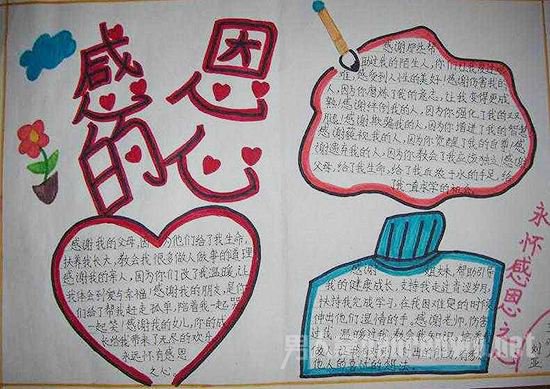 感恩
的心
感谢我的父母,因为他们给了我生命,
扶养我长大,教会我很多做人做事的道理
感谢我的家人,因为你们改了我温暖,让
我体会到爱与幸福!感谢我的朋友,是你
们给了帮我赶走孤单,陪着我一起哭
一起笑!感谢我的女儿,你的成
长给我带来了无尽的欢乐
永远怀有感恩
之心。
感谢那些帮
助过我的陌生人,你们让我
难,感受到人性的美好!感谢伤害我的
人,因为你磨炼了我的意志,让我变得更成
熟!感谢绊倒我的人,因为你强化了我的双
腿!感谢欺骗我的人,因为你增进了我的智慧
感谢藐视我的人,因为你觉醒了我的自尊!感
谢遗弃我的人,因为你教会了我应该独立!感谢
父母,给了我生命,给了我血浓于水的手足,给
了我
感谢 姐妹,帮助引导
我的健康成长,支持我走过青涩岁月,
扶持我完成学习,在我困难是的时候
伸出他们温情的手。感谢老师,
永怀感恩之心
刘亚